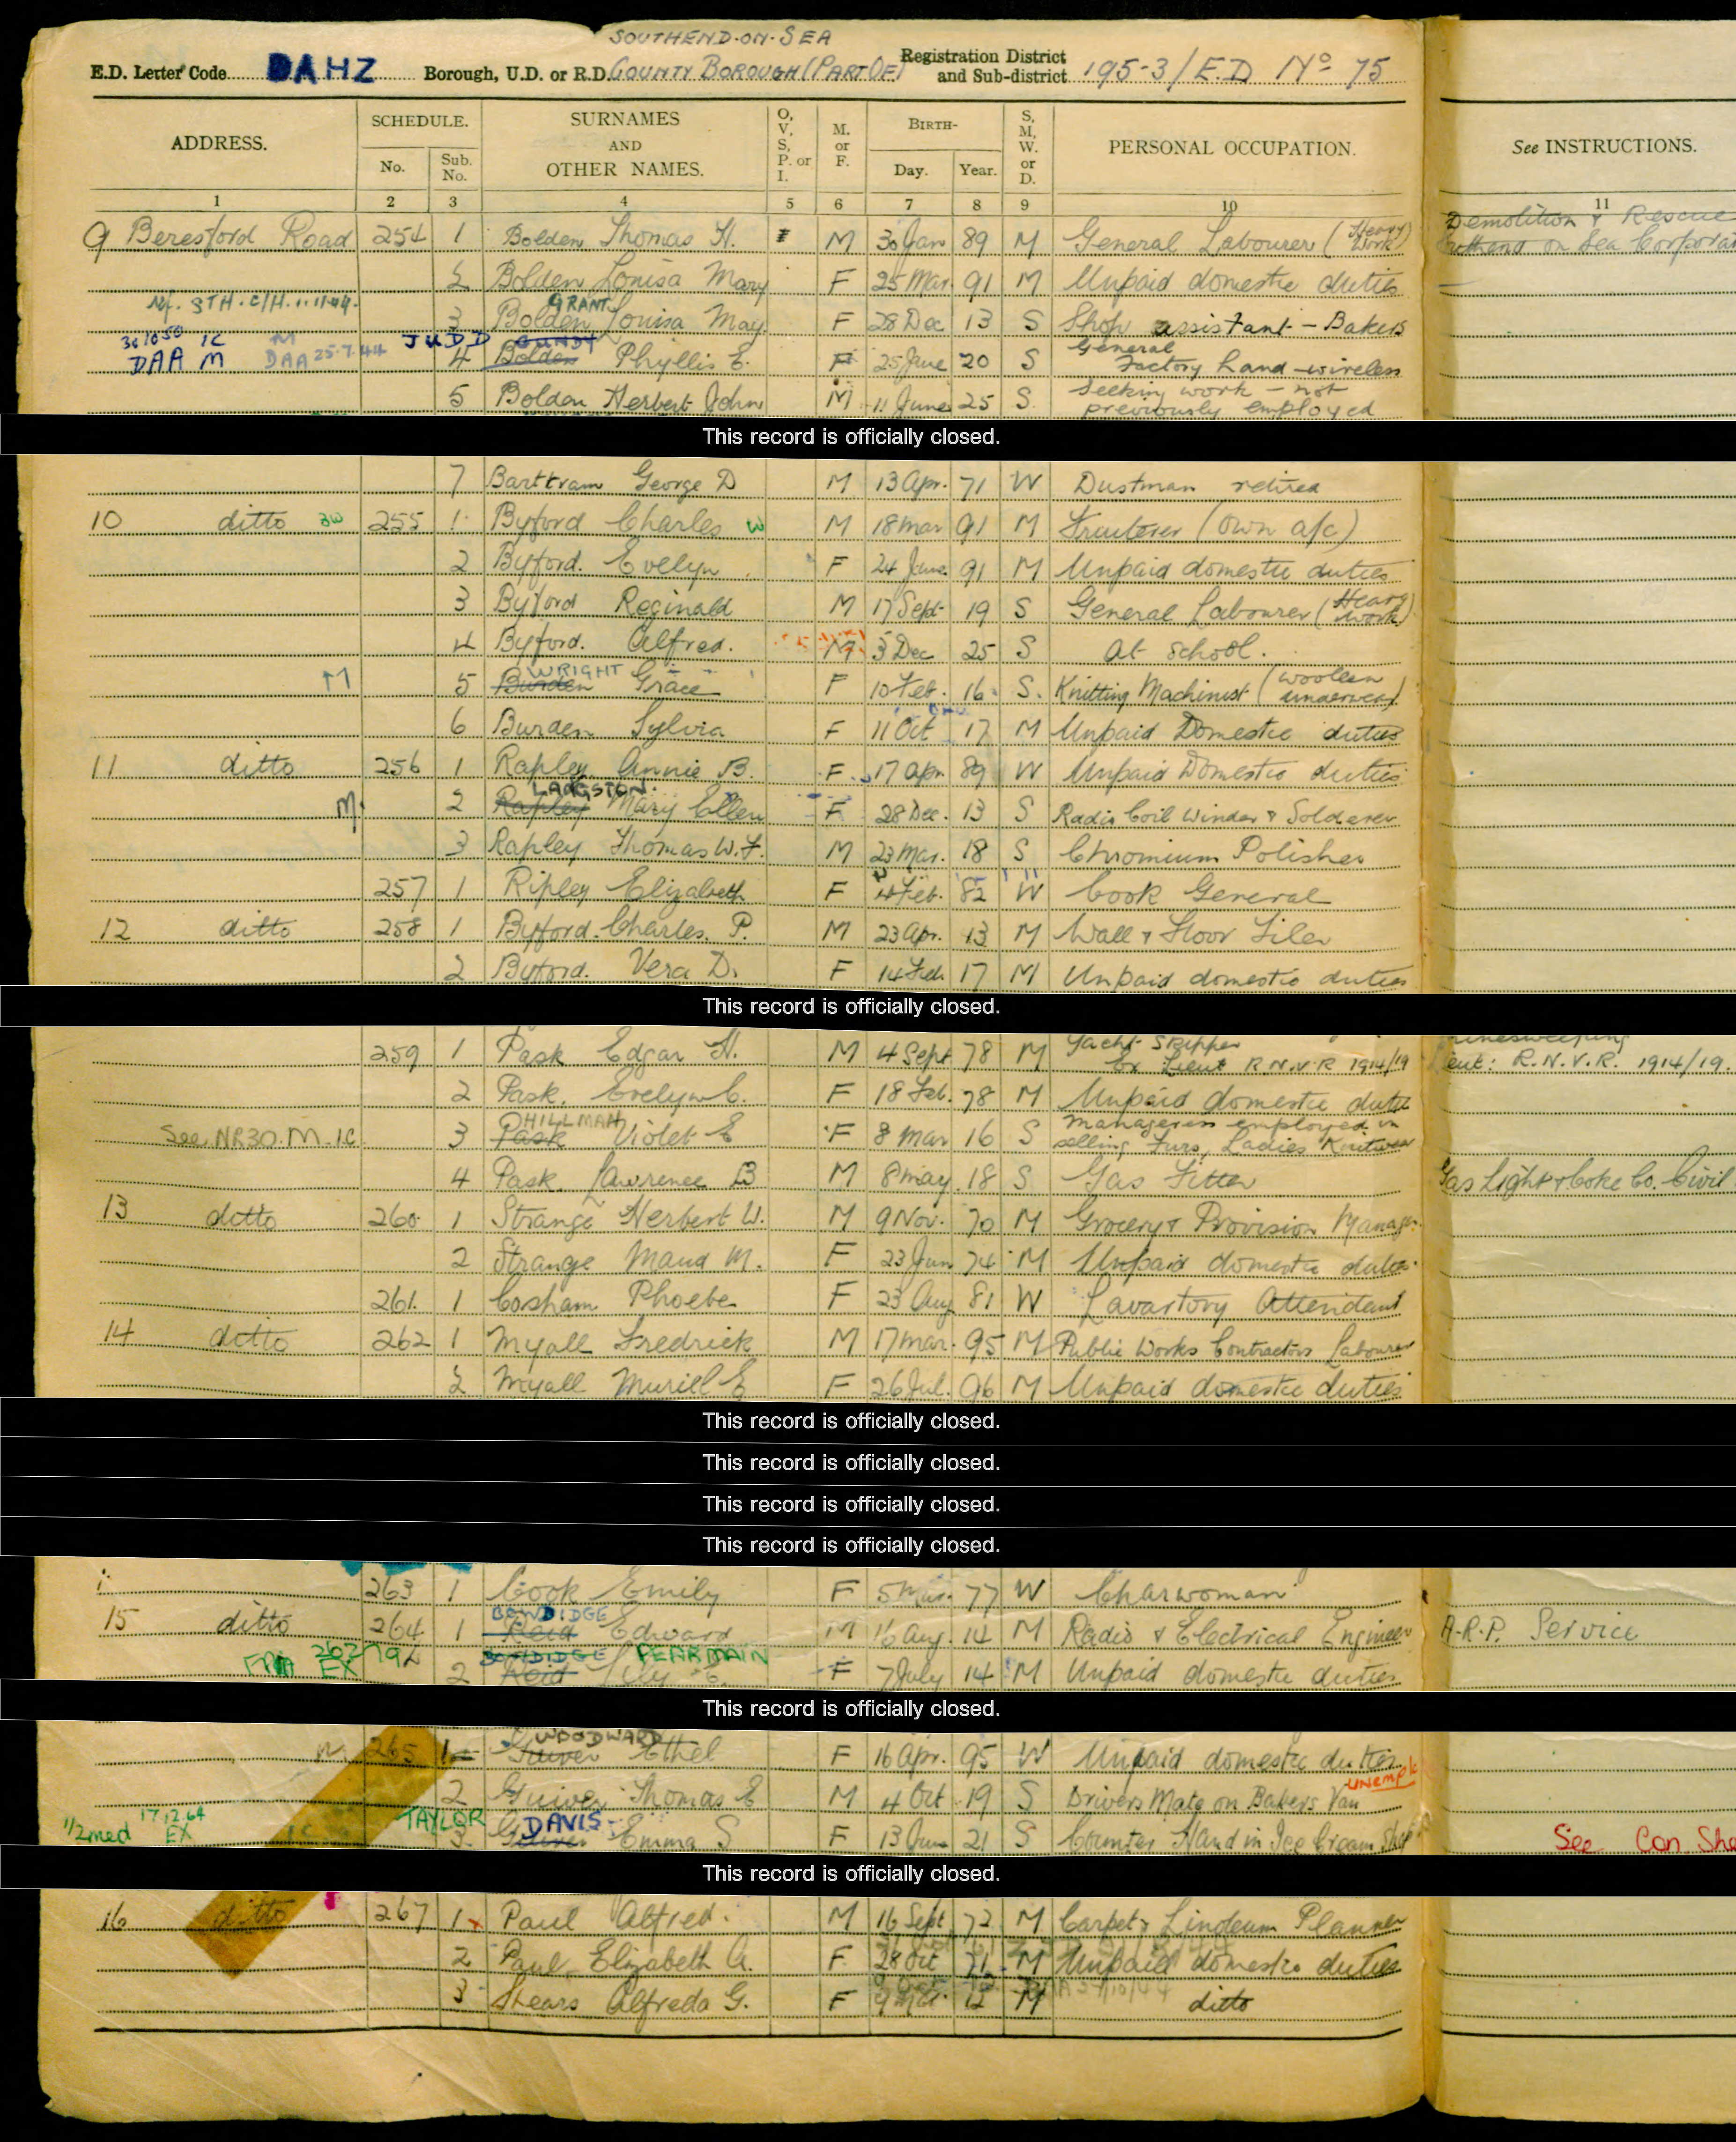 SOUTHEND-ON-SEA
E.D. Letter Code DAHZ Borough, U.D. or R.D. COUNTY BOROUGH (PART OF) Registration District and Sub-district 195-3/E.D Nº 75
ADDRESS. SCHEDULE. No. Sub. No. SURNAMES AND OTHER NAMES. O, V, S, P. or I. M. or F. BIRTH- Day. Year. S, M, W. or D. PERSONAL OCCUPATION. See INSTRUCTIONS.
1 2 3 4 5 6 7 8 9 10 11
9 Beresford Road 254 1 Bolden Thomas H. M 30 Jan 89 M General Labourer (Heavy Work) Demolition & Rescue Southend on Sea Corporat
2 Bolden Louisa Mary F 25 Mar 91 M Unpaid domestic duties
GRANT
3 Bolden Louisa May F 28 Dec 13 S Shop assistant - Bakers
JUDD
DAA M DAA 25.7.44 4 Bolden Phyllis E. F 25 June 20 S General Factory hand - wireless
5 Bolden Herbert John M 11 June 25 S Seeking work - not previously employed
This record is officially closed.
7 Barttram George D M 13 Apr. 71 W Dustman retired
10 ditto 255 1 Byford Charles W M 18 Mar 91 M Fruiterer (own a/c)
2 Byford. Evelyn F 24 June 91 M Unpaid domestic duties
3 Byford Reginald M 17 Sept 19 S General Labourer (Heavy Work)
4 Byford. Alfred. M 3 Dec 25 S At school.
WRIGHT
M 5 Burden Grace F 10 Feb. 16 S. Knitting Machinist (woolen underwear)
6 Burden Sylvia F 11 Oct 17 M Unpaid Domestic duties
11 ditto 256 1 Rapley Annie B. F 17 Apr 89 W Unpaid Domestic duties
LANGSTON
M. 2 Rapley Mary Ellen F 28 Dec. 13 S Radio Coil Winder & Solderer
3 Rapley Thomas W.F. M 23 Mar. 18 S Chromium Polisher
257 1 Ripley Elizabeth F 4 Feb. 82 W Cook General
12 ditto 258 1 Byford. Charles. P. M 23 Apr. 13 M Wall & Floor Tiler
2 Byford. Vera D. F 14 Feb 17 M Unpaid domestic duties
This record is officially closed.
259 1 Pask Edgar H. M 4 Sept 78 M Yacht Skipper Ex Lieut R.N.V.R 1914/19 minesweeping Lieut: R.N.V.R. 1914/19.
2 Pask. Evelyn C. F 18 Feb. 78 M Unpaid domestic dutie
HILLMAN
See NR30. M. IC 3 Pask Violet E F 8 Mar 16 S Manageress employed in selling Furs, Ladies Knitwear
4 Pask. Lawrence B M 8 May 18 S Gas Fitter Gas Light & Coke Co. Civil
13 ditto 260 1 Strange Herbert W. M 9 Nov. 70 M Grocery & Provision Manager
2 Strange Maud M. F 23 Jun 74 M Unpaid domestic duties
261 1 Cosham Phoebe F 23 Aug 81 W Lavartory Attendant
14 ditto 262 1 Myall Fredrick M 17 Mar. 95 M Public Works Contractors Labourer
2 Myall Muriell E F 26 Jul. 96 M Unpaid domestic duties
This record is officially closed.
This record is officially closed.
This record is officially closed.
This record is officially closed.
263 1 Cook Emily F 5 Mar. 77 W Charwoman
BOWDIDGE
15 ditto 264 1 Reid Edward M 16 Aug. 14 M Radio & Electrical Engineer A.R.P. Service
BOWDIDGE PEARMAIN
EX 2 Reid Lily E. F 7 July 14 M Unpaid domestic duties
This record is officially closed.
WOODWARD
M. 265 1 Guiver Ethel F 16 Apr. 95 W Unpaid domestic duties
2 Guiver Thomas E M 4 Oct 19 S Drivers Mate on Bakers Van UNEMP
1/2med 17.12.64 EX TAYLOR DAVIS
3 Guiver Emma S F 13 Jun 21 S Counter Hand in Ice Cream Shop See Con. She
This record is officially closed.
16 ditto 267 1 x Paul Alfred. M 16 Sept 72 M Carpet & Linoleum Planner
2 Paul Elizabeth A. F 28 Oct 71 M Unpaid domestic duties
3 Shears Alfreda G. F 9 12 M ditto